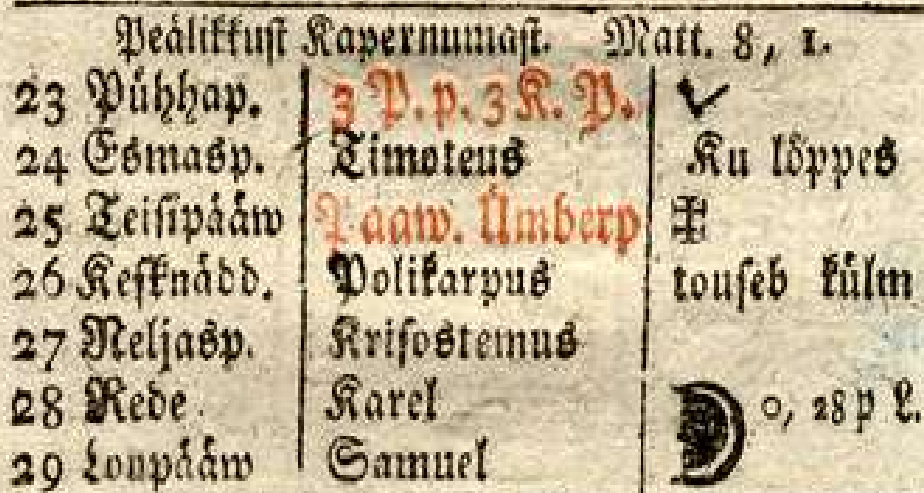 Peälikkust Kapernumast. Matt. 8, 1.
23 Pühhap. 3 P. p. 3 K. P.
24 Esmasp. Timoteus Ku löppes
25 Teisipääw Paaw. Ümberp
26 Kesknädd. Polikarpus touseb külm
27 Neljasp. Krisostemus
28 Rede Karel 0, 28 p L.
29 Loupääw Samuel